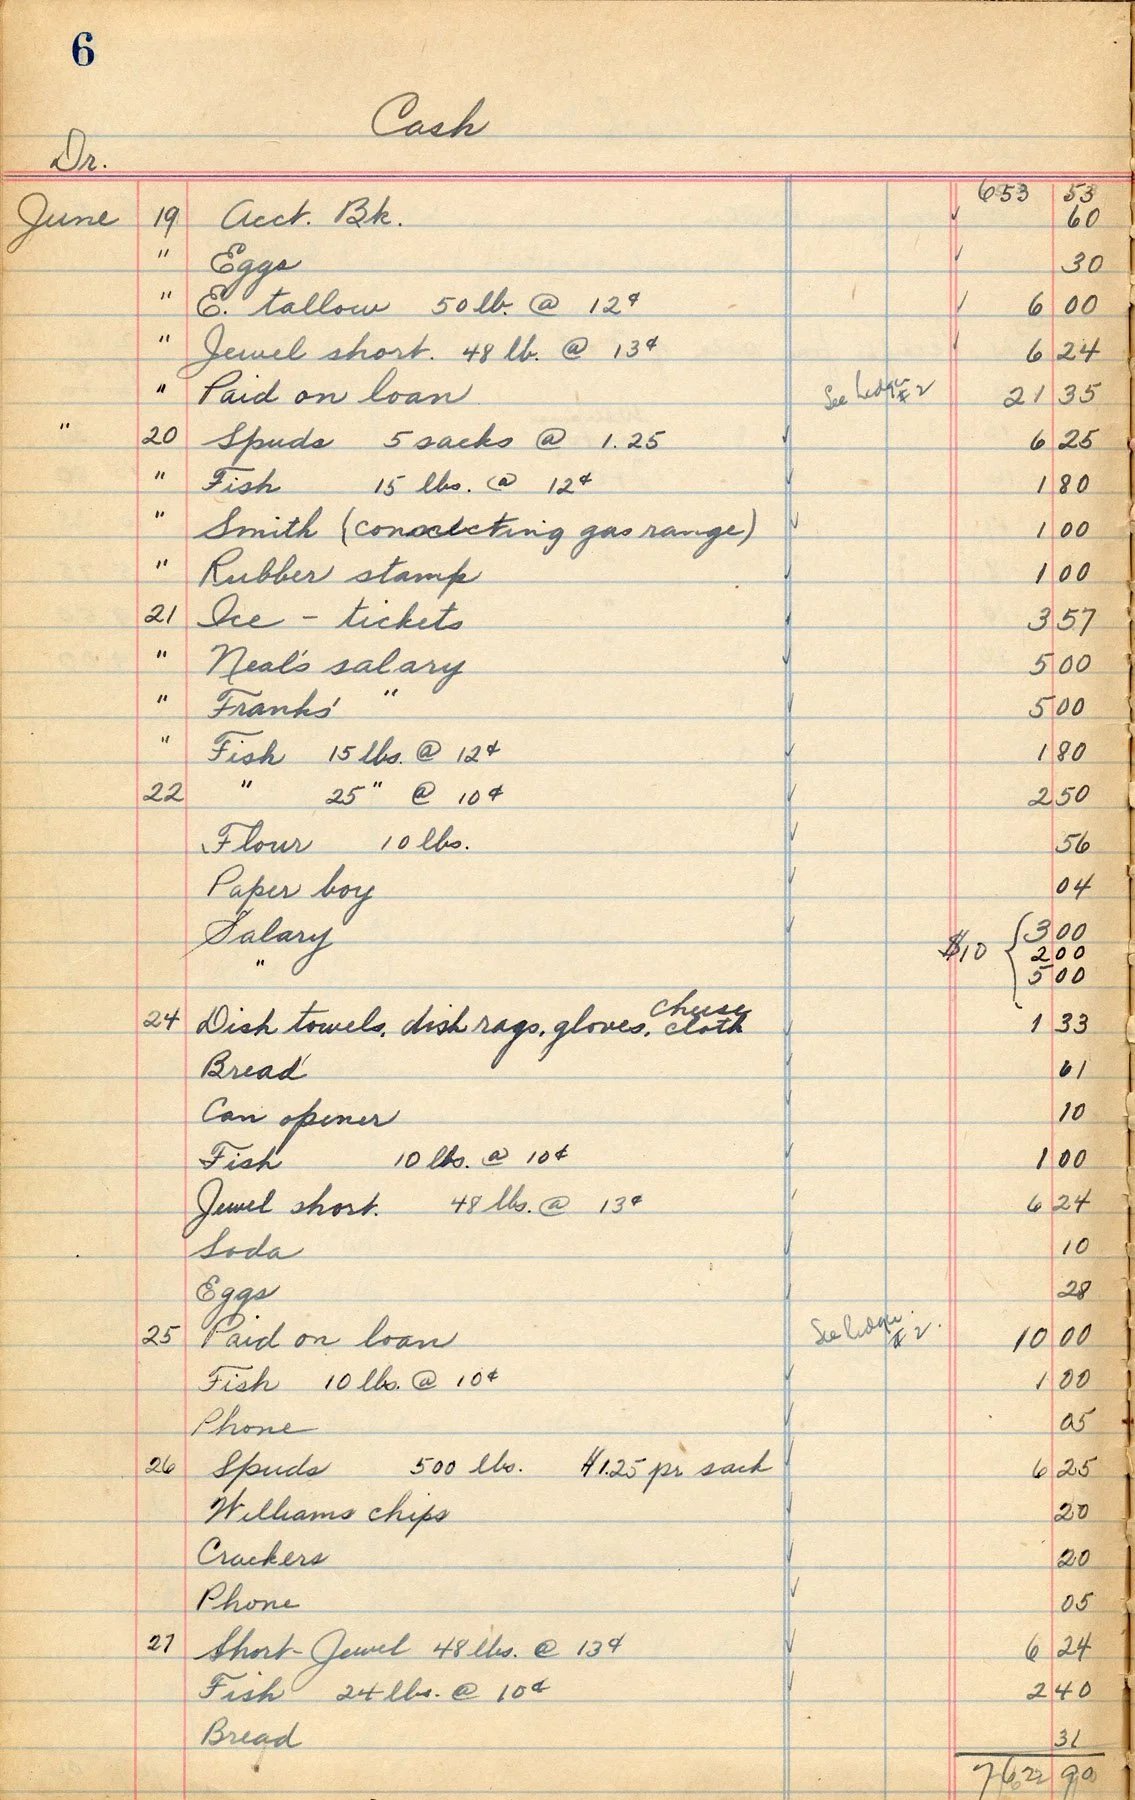 6
Cash
Dr.
653 53
June 19 Acct. Bk. ✓ 60
" Eggs ✓ 30
" E. tallow 50 lb. @ 12¢ ✓ 6 00
" Jewel short. 48 lb. @ 13¢ ✓ 6 24
" Paid on loan See #2 21 35
" 20 Spuds 5 sacks @ 1.25 ✓ 6 25
" Fish 15 lbs. @ 12¢ ✓ 1 80
" Smith (connecting gas range) ✓ 1 00
" Rubber stamp ✓ 1 00
21 Ice - tickets ✓ 3 57
" Neal's salary ✓ 5 00
" Franks' " ✓ 5 00
" Fish 15 lbs. @ 12¢ ✓ 1 80
22 " 25 " @ 10¢ ✓ 2 50
Flour 10 lbs. ✓ 56
Paper boy ✓ 04
Salary ✓ $10 { 3 00
" 2 00
5 00
24 Dish towels, dish rags, gloves, cheese cloth ✓ 1 33
Bread ✓ 61
Can opener ✓ 10
Fish 10 lbs. @ 10¢ ✓ 1 00
Jewel short. 48 lbs. @ 13¢ ✓ 6 24
Soda ✓ 10
Eggs ✓ 28
25 Paid on loan See #2. 10 00
Fish 10 lbs. @ 10¢ ✓ 1 00
Phone ✓ 05
26 Spuds 500 lbs. $1.25 pr sack ✓ 6 25
Williams chips ✓ 20
Crackers ✓ 20
Phone ✓ 05
27 Short-Jewel 48 lbs. @ 13¢ ✓ 6 24
Fish 24 lbs. @ 10¢ ✓ 2 40
Bread 31
762 90